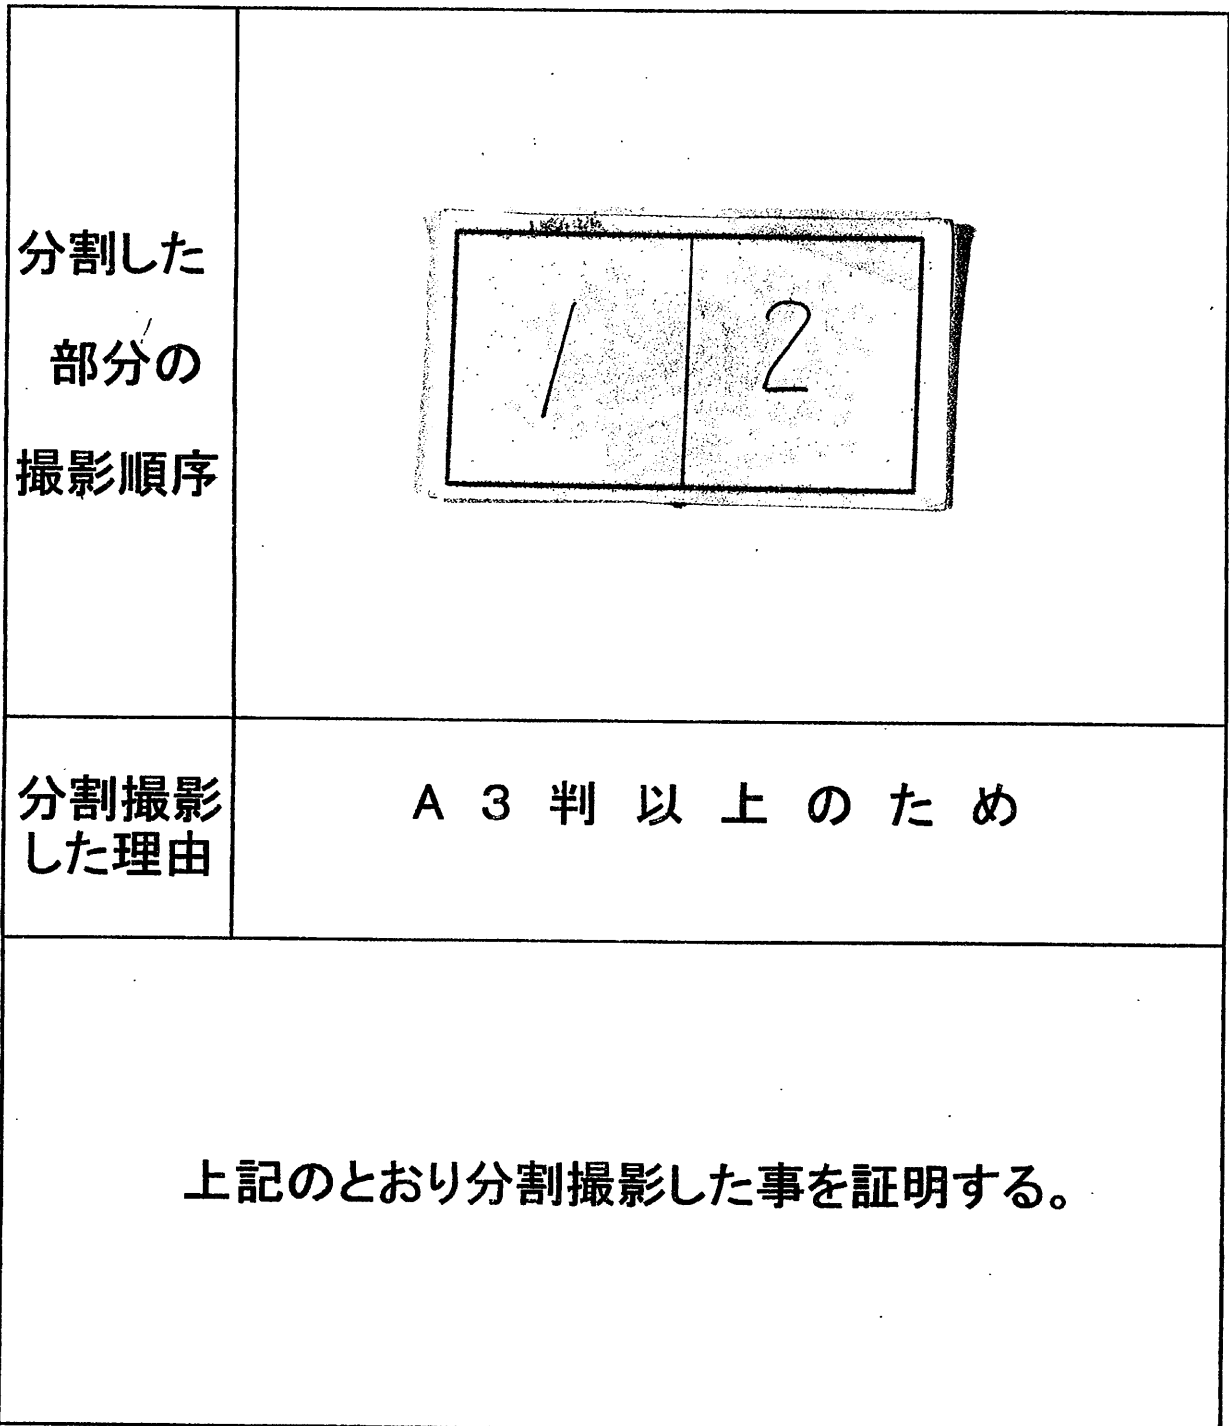 分割した
部分の
撮影順序
1 2
分割撮影
した理由
A3判以上のため
上記のとおり分割撮影した事を証明する。